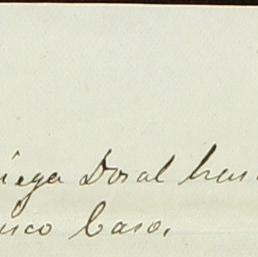 iega Dosal
isco Caso,